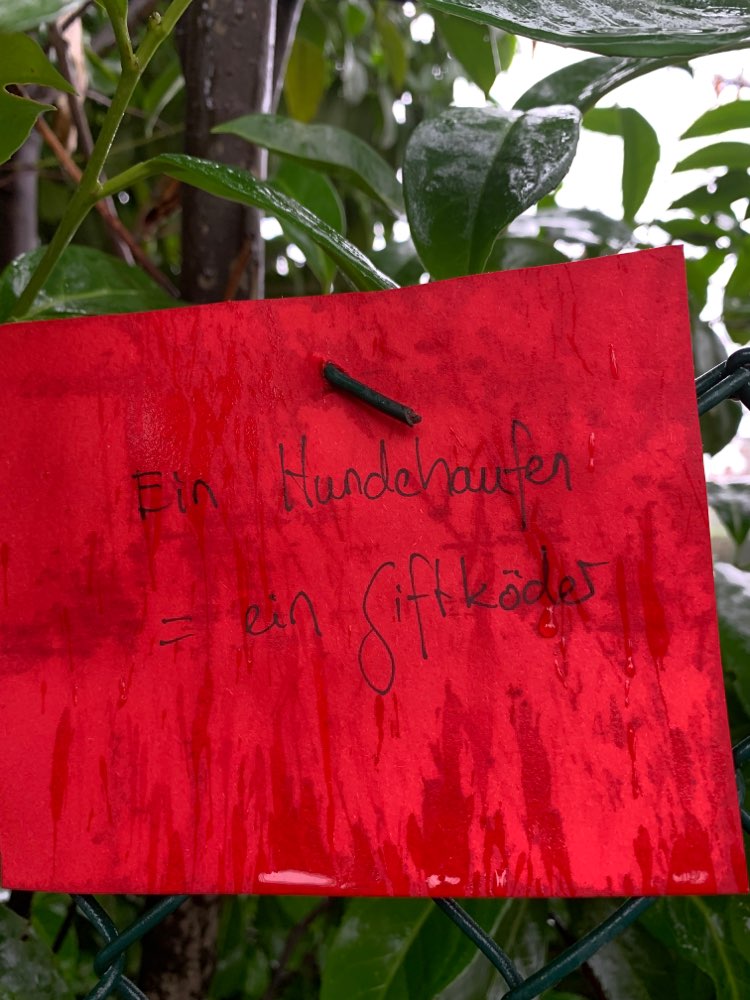 Ein Hundehaufen
= ein Giftköder